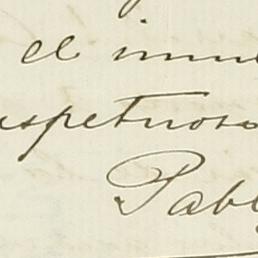 el inm
spetuoso
Pabl